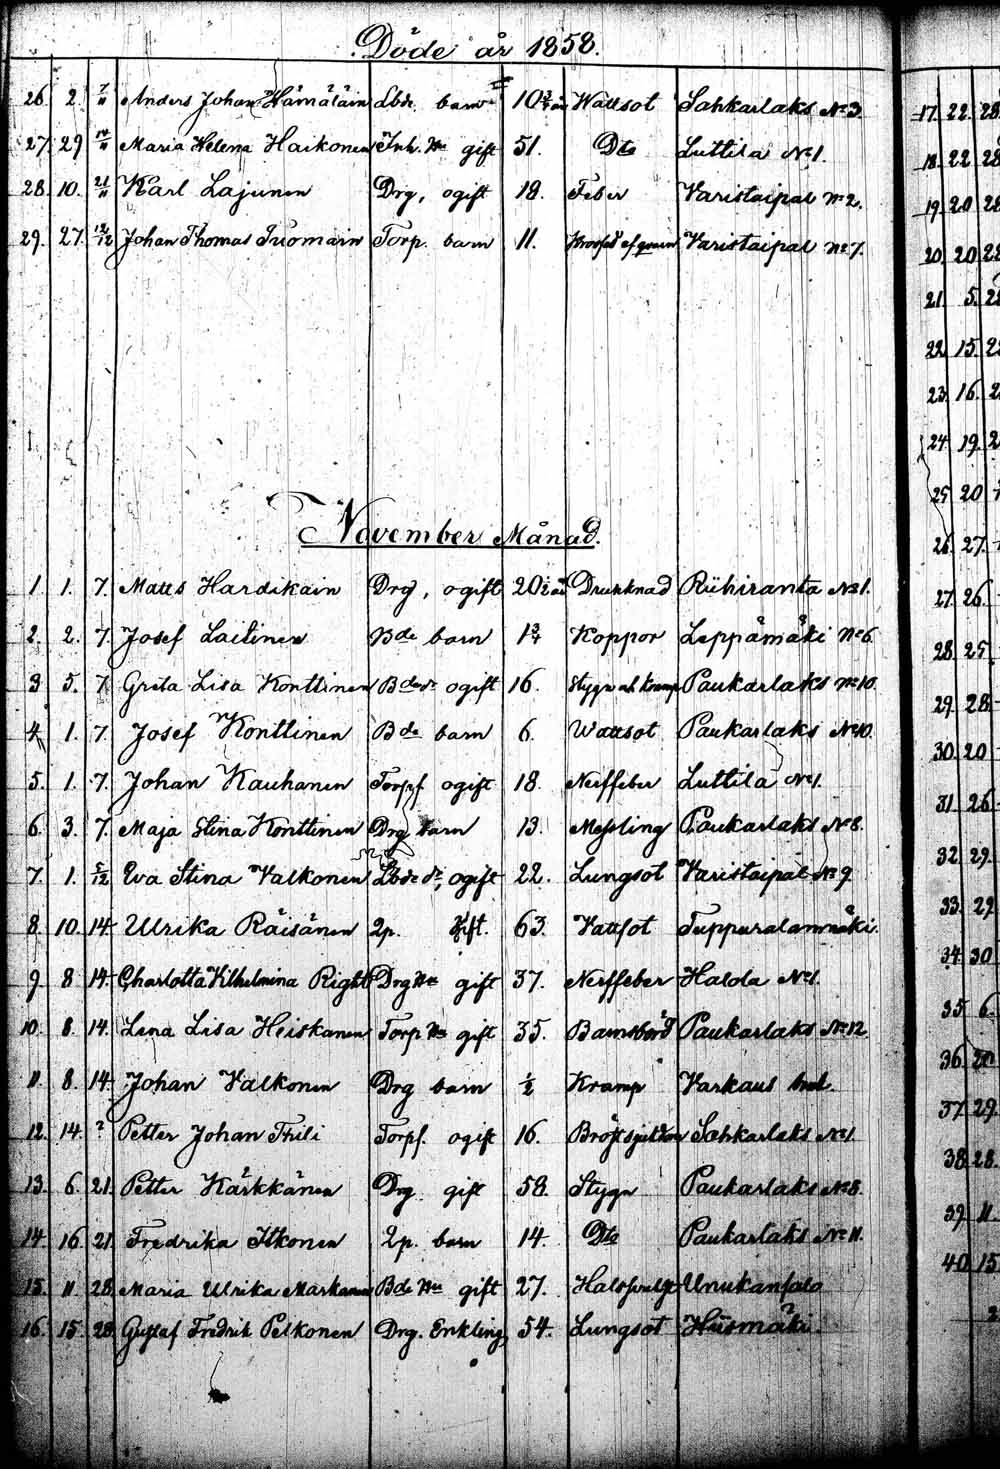 Döde år 1858.
26. 2. 7/11 Anders Johan Hämäläin Lbde barn 10 3/4 år Wattsot Sahkarlaks No 3.
27. 29 14/11 Maria Helena Haikonen Inh. Hu gift 51. Dto Luttila No 1.
28. 10. 21/11 Karl Lajunen Drg, ogift 18. Feber Varistaipal No 2.
29. 27. 12/12 Johan Thomas Tuomain Torp. barn 11. Varistaipal No 7.
November Månad.
1. 1. 7. Matts Hardikain Drg, ogift 20 1/2 år Drunknad Riihiranta No 1.
2. 2. 7. Josef Laitinen Bde barn 1 3/4 Koppor Leppämäki No 6.
3 5. 7. Greta Lisa Konttinen Bdedr ogift 16. Stygn och kramp Paukarlaks No 10.
4 1. 7. Josef Konttinen Bde barn 6. Wattsot Paukarlaks No 10.
5. 1. 7. Johan Kauhanen Torpf ogift 18. Nerffeber Luttila No 1.
6. 3. 7. Maja Stina Konttinen Drg barn 13. Messling Paukarlaks No 8.
7. 1. 5/12 Eva Stina Valkonen Lbde dr, ogift 22. Lungsot Varistaipal No 9.
8. 10. 14 Ulrika Räisänen Lp. gift. 63. Vattsot Tuppuralanmäki.
9. 8 14. Charlotta Vilhelmina Right Drg Hu gift 37. Nerffeber Halola No 1.
10. 8. 14. Lena Lisa Heiskanen Torp Hu gift 35. Barnsbörd Paukarlaks No 12.
11. 8. 14. Johan Valkonen Drg barn 1/2 Kramp Varkaus bruk.
12. 14. ? Petter Johan Thili Torpf. ogift 16. Bröstsjukdom Sahkarlaks No 1.
13. 6. 21. Petter Kärkkänen Drg gift 58. Stygn Paukarlaks No 8.
14. 16. 21. Fredrika Itkonen Lp. barn 14. Dto Paukarlaks No 11.
15. 11 28. Maria Ulrika Markanen Bde Hu gift 27. Unnukansalo
16. 15. 28. Gustaf Fredrik Pelkonen Drg. Enkling 54. Lungsot Husmäki.
17. 22. 28
18. 22 28
19. 20 28
20. 20 28
21. 5. 28
22 15. 28
23. 16. 2
24. 19. 2
25 20
26 27.
27. 26.
28. 25
29. 28
30. 20
31. 26
32. 29.
33. 29
34 30
35. 6
36. 20
37. 29.
38. 28.
39. 11.
40. 15